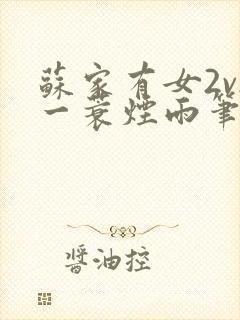 蘇家有女2v
一蓑煙雨筆
醬油控